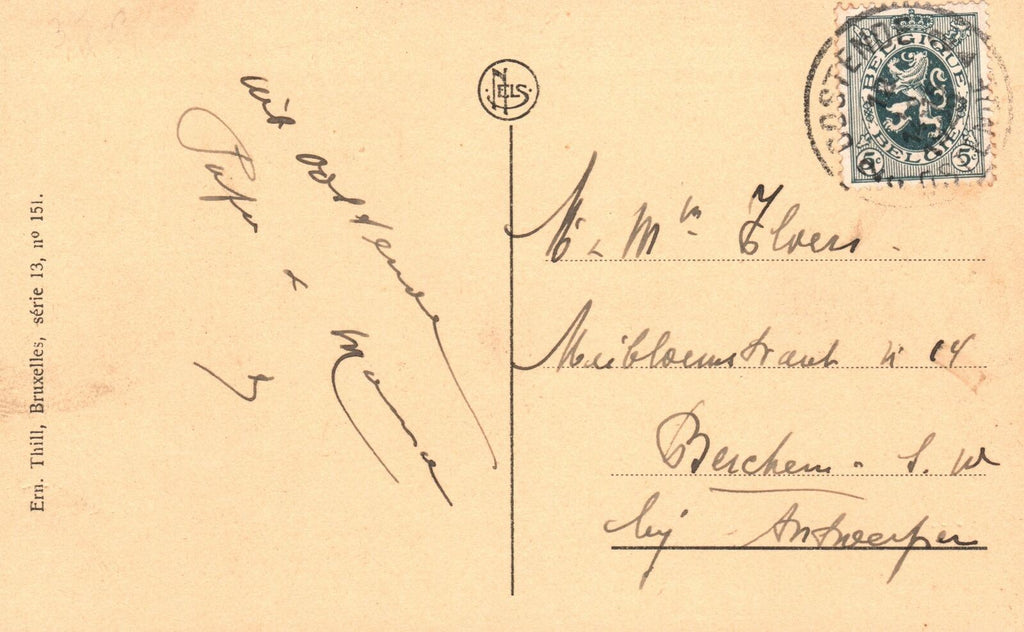 Ern. Thill, Bruxelles, série 13, nº 151.
uit oostende
Papa
+ Mama
NELS
OOSTENDE
BELGIQUE
BELGIE
5c 5c
Mr & Mme
Meibloemstraat n 14
Berchem - S. W
bij Antwerpen